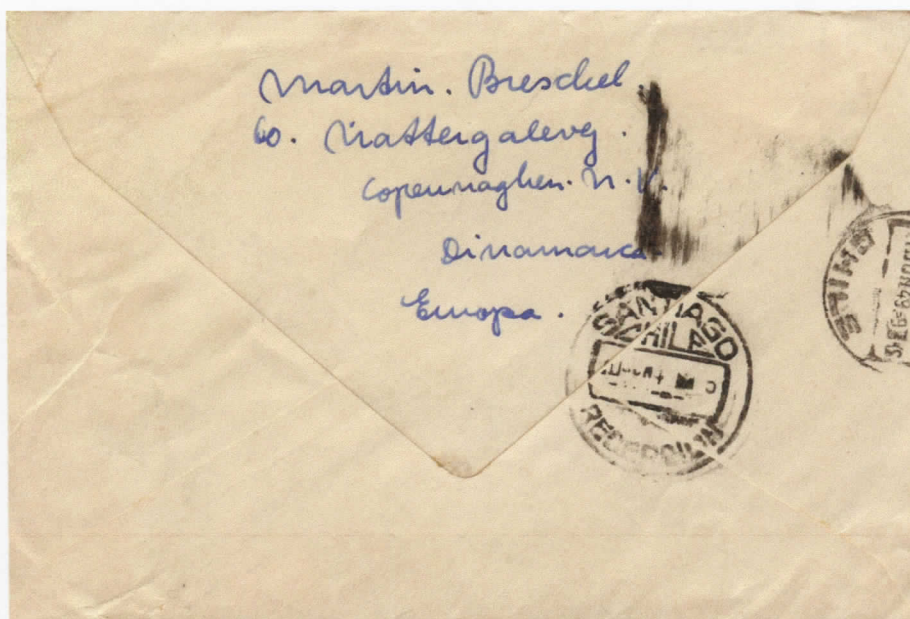 Martin. Breschel.
60. Nattergalevej.
Copennaghen. N. V.
Dinamarca
Europa.
SANTIAGO
CHILE